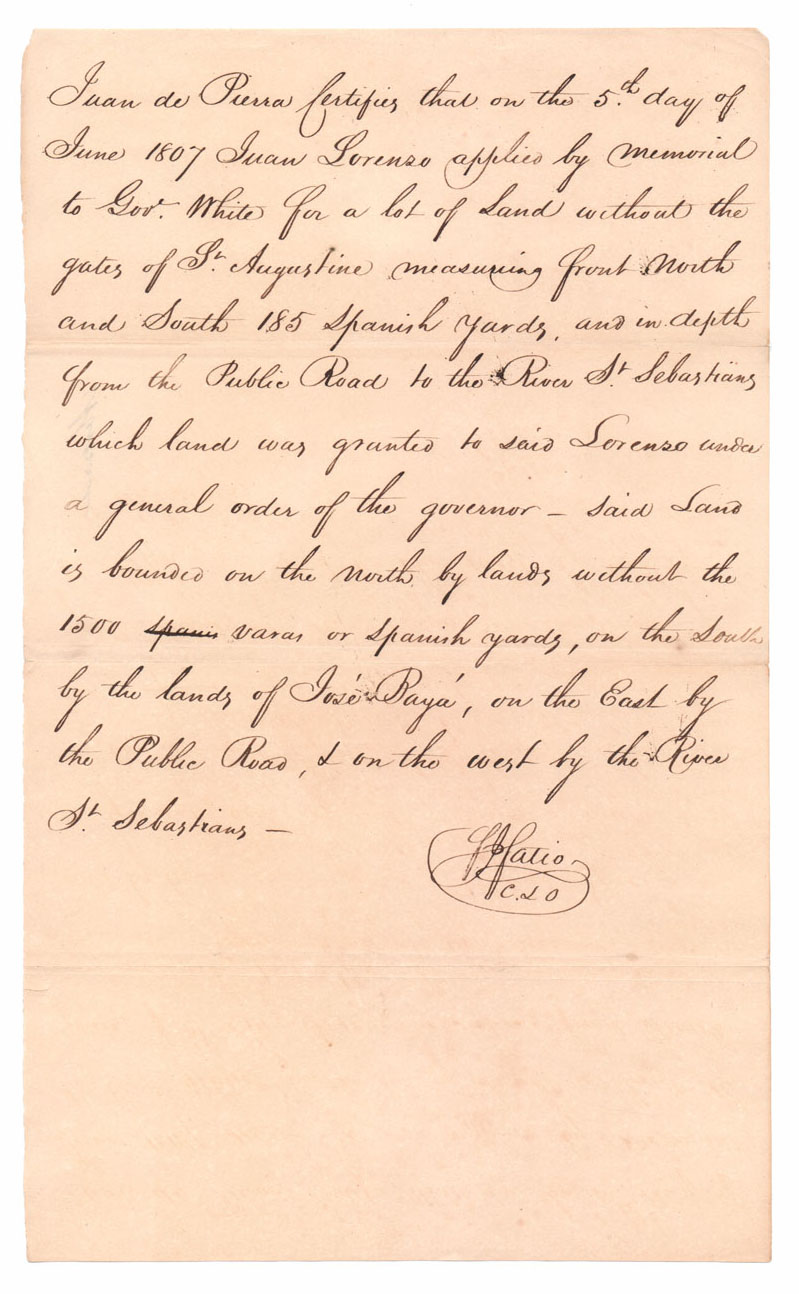 Juan de Pierra Certifies that on the 5.th day of
June 1807 Juan Lorenzo applied by memorial
to Govr. White for a lot of Land without the
gates of St. Augustine measuring front North
and South 185 Spanish yards, and in depth
from the Public Road to the River St. Sebastians
which land was granted to said Lorenzo under
a general order of the governor – said Land
is bounded on the North by lands without the
1500 spanis varas or Spanish yards, on the South
by the lands of José Bayá, on the East by
the Public Road, & on the west by the River
St. Sebastians –
Fatio